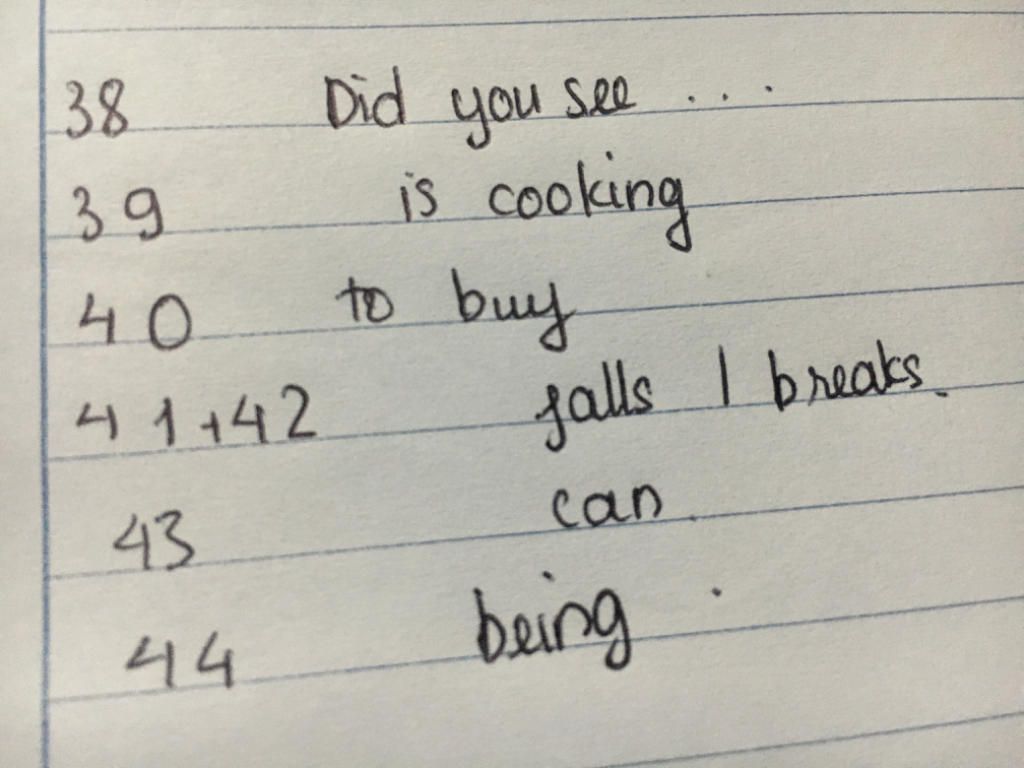 38 Did you see ...
39 is cooking
40 to buy
41+42 falls | breaks.
43 can.
44 being.